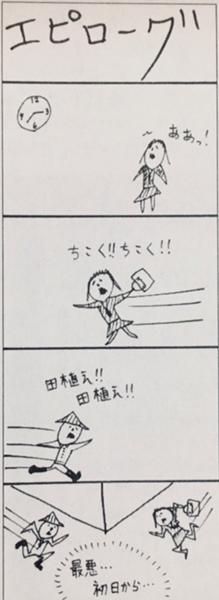 エピローグ
12
3
6
9
ああっ!
ちこく!!ちこく!!
田植え!!
田植え!!
最悪…
初日から…